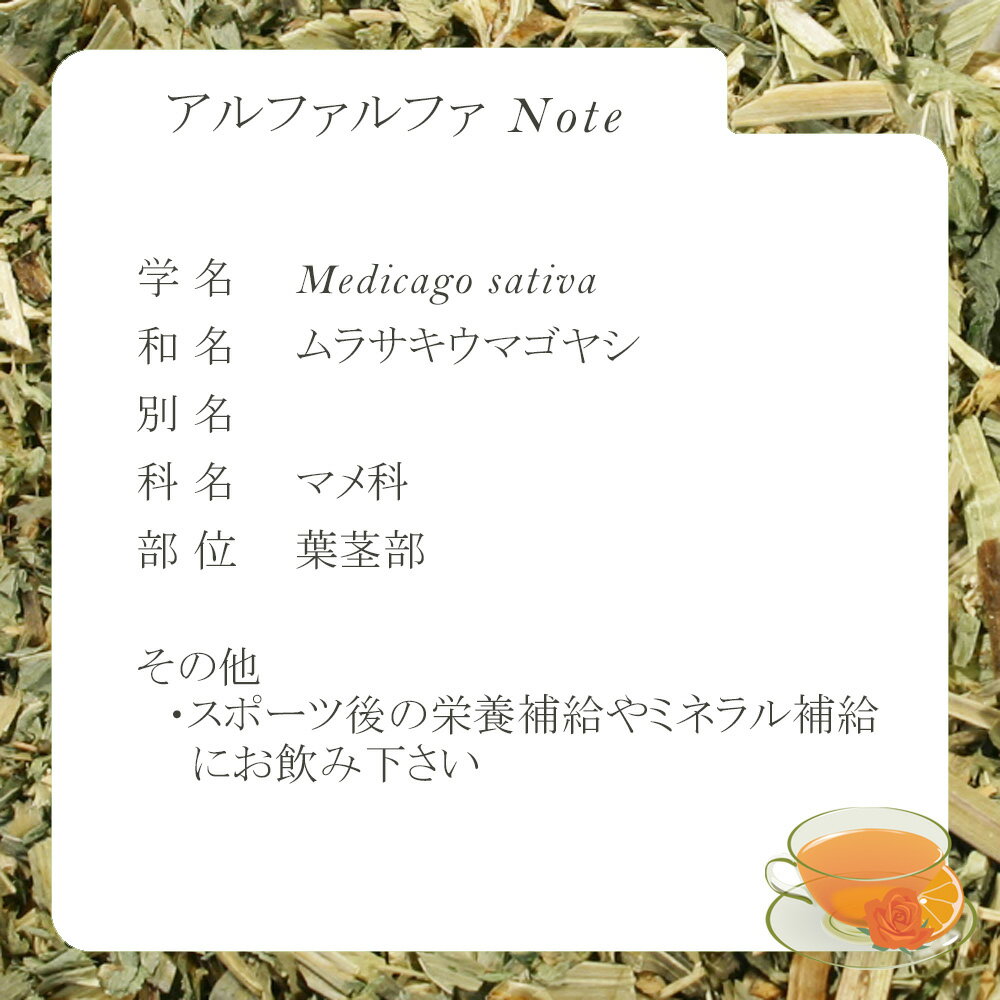 アルファルファ Note
学名 Medicago sativa
和名 ムラサキウマゴヤシ
別名
科名 マメ科
部位 葉茎部
その他
・スポーツ後の栄養補給やミネラル補給
にお飲み下さい